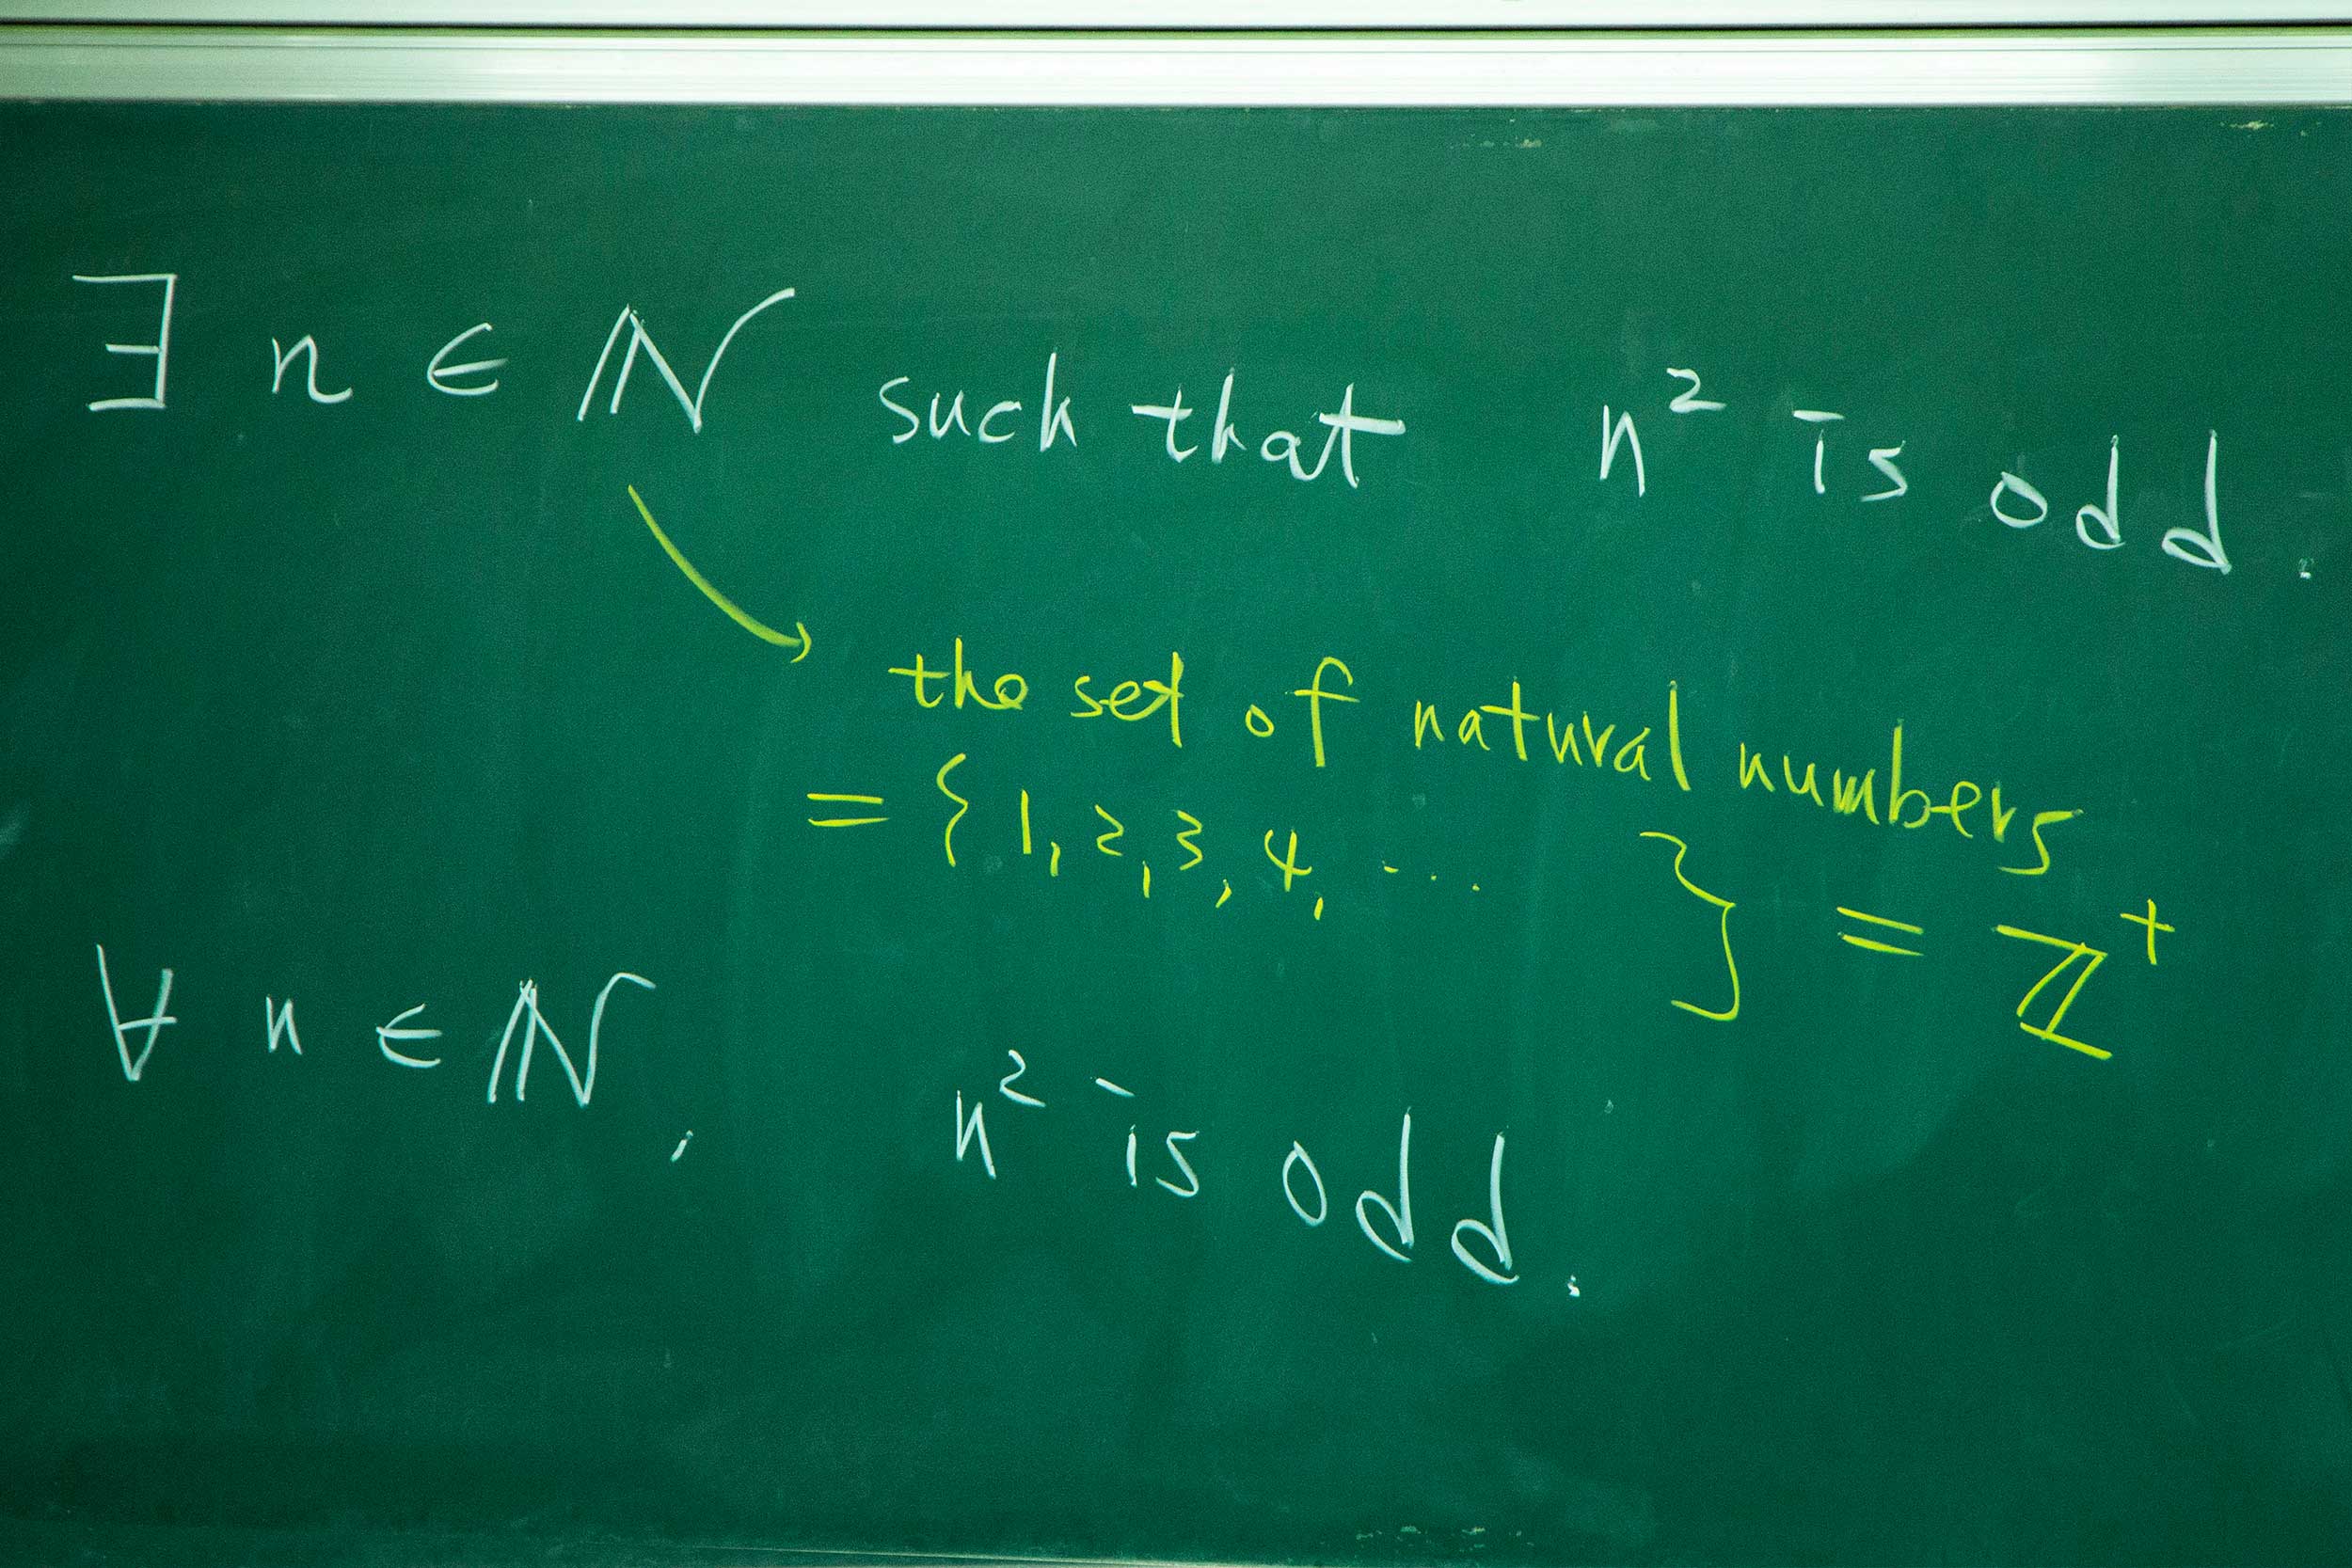 ∃ n ∈ ℕ such that n² is odd.
the set of natural numbers
= {1, 2, 3, 4, ... } = ℤ⁺
∀ n ∈ ℕ, n² is odd.